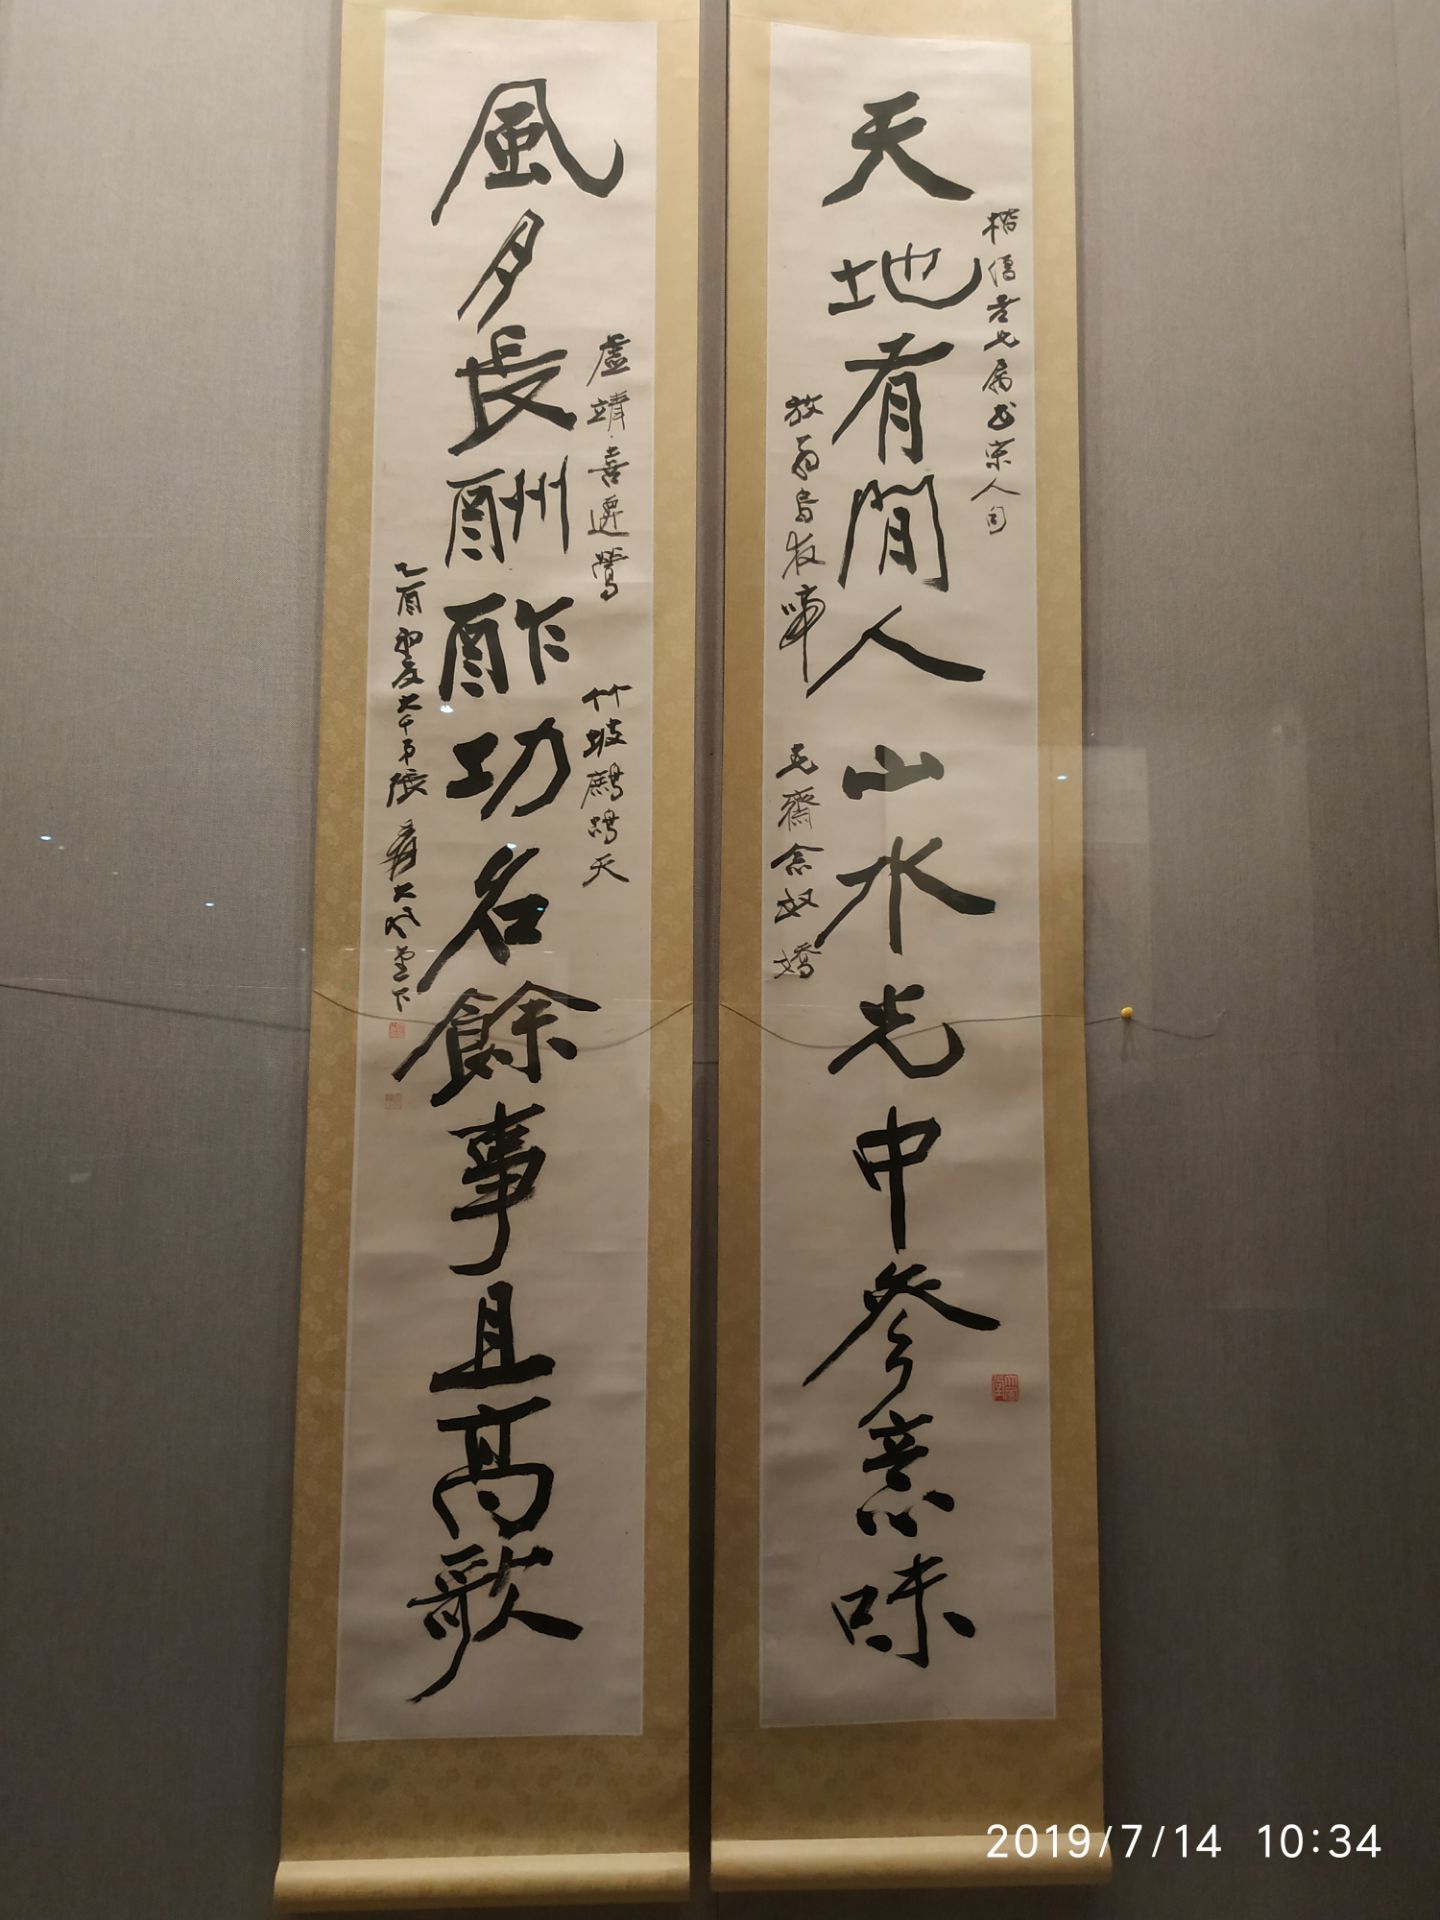 天地有閒人山水光中參意味
楷儒老先屬書宋人句
放翁烏夜啼
克齋念奴嬌
風月長酬酢功名餘事且高歌
虛靖喜遷鶯
竹坡鷓鴣天
乙酉初夏大千弟張爰大風堂下
2019/7/14 10:34